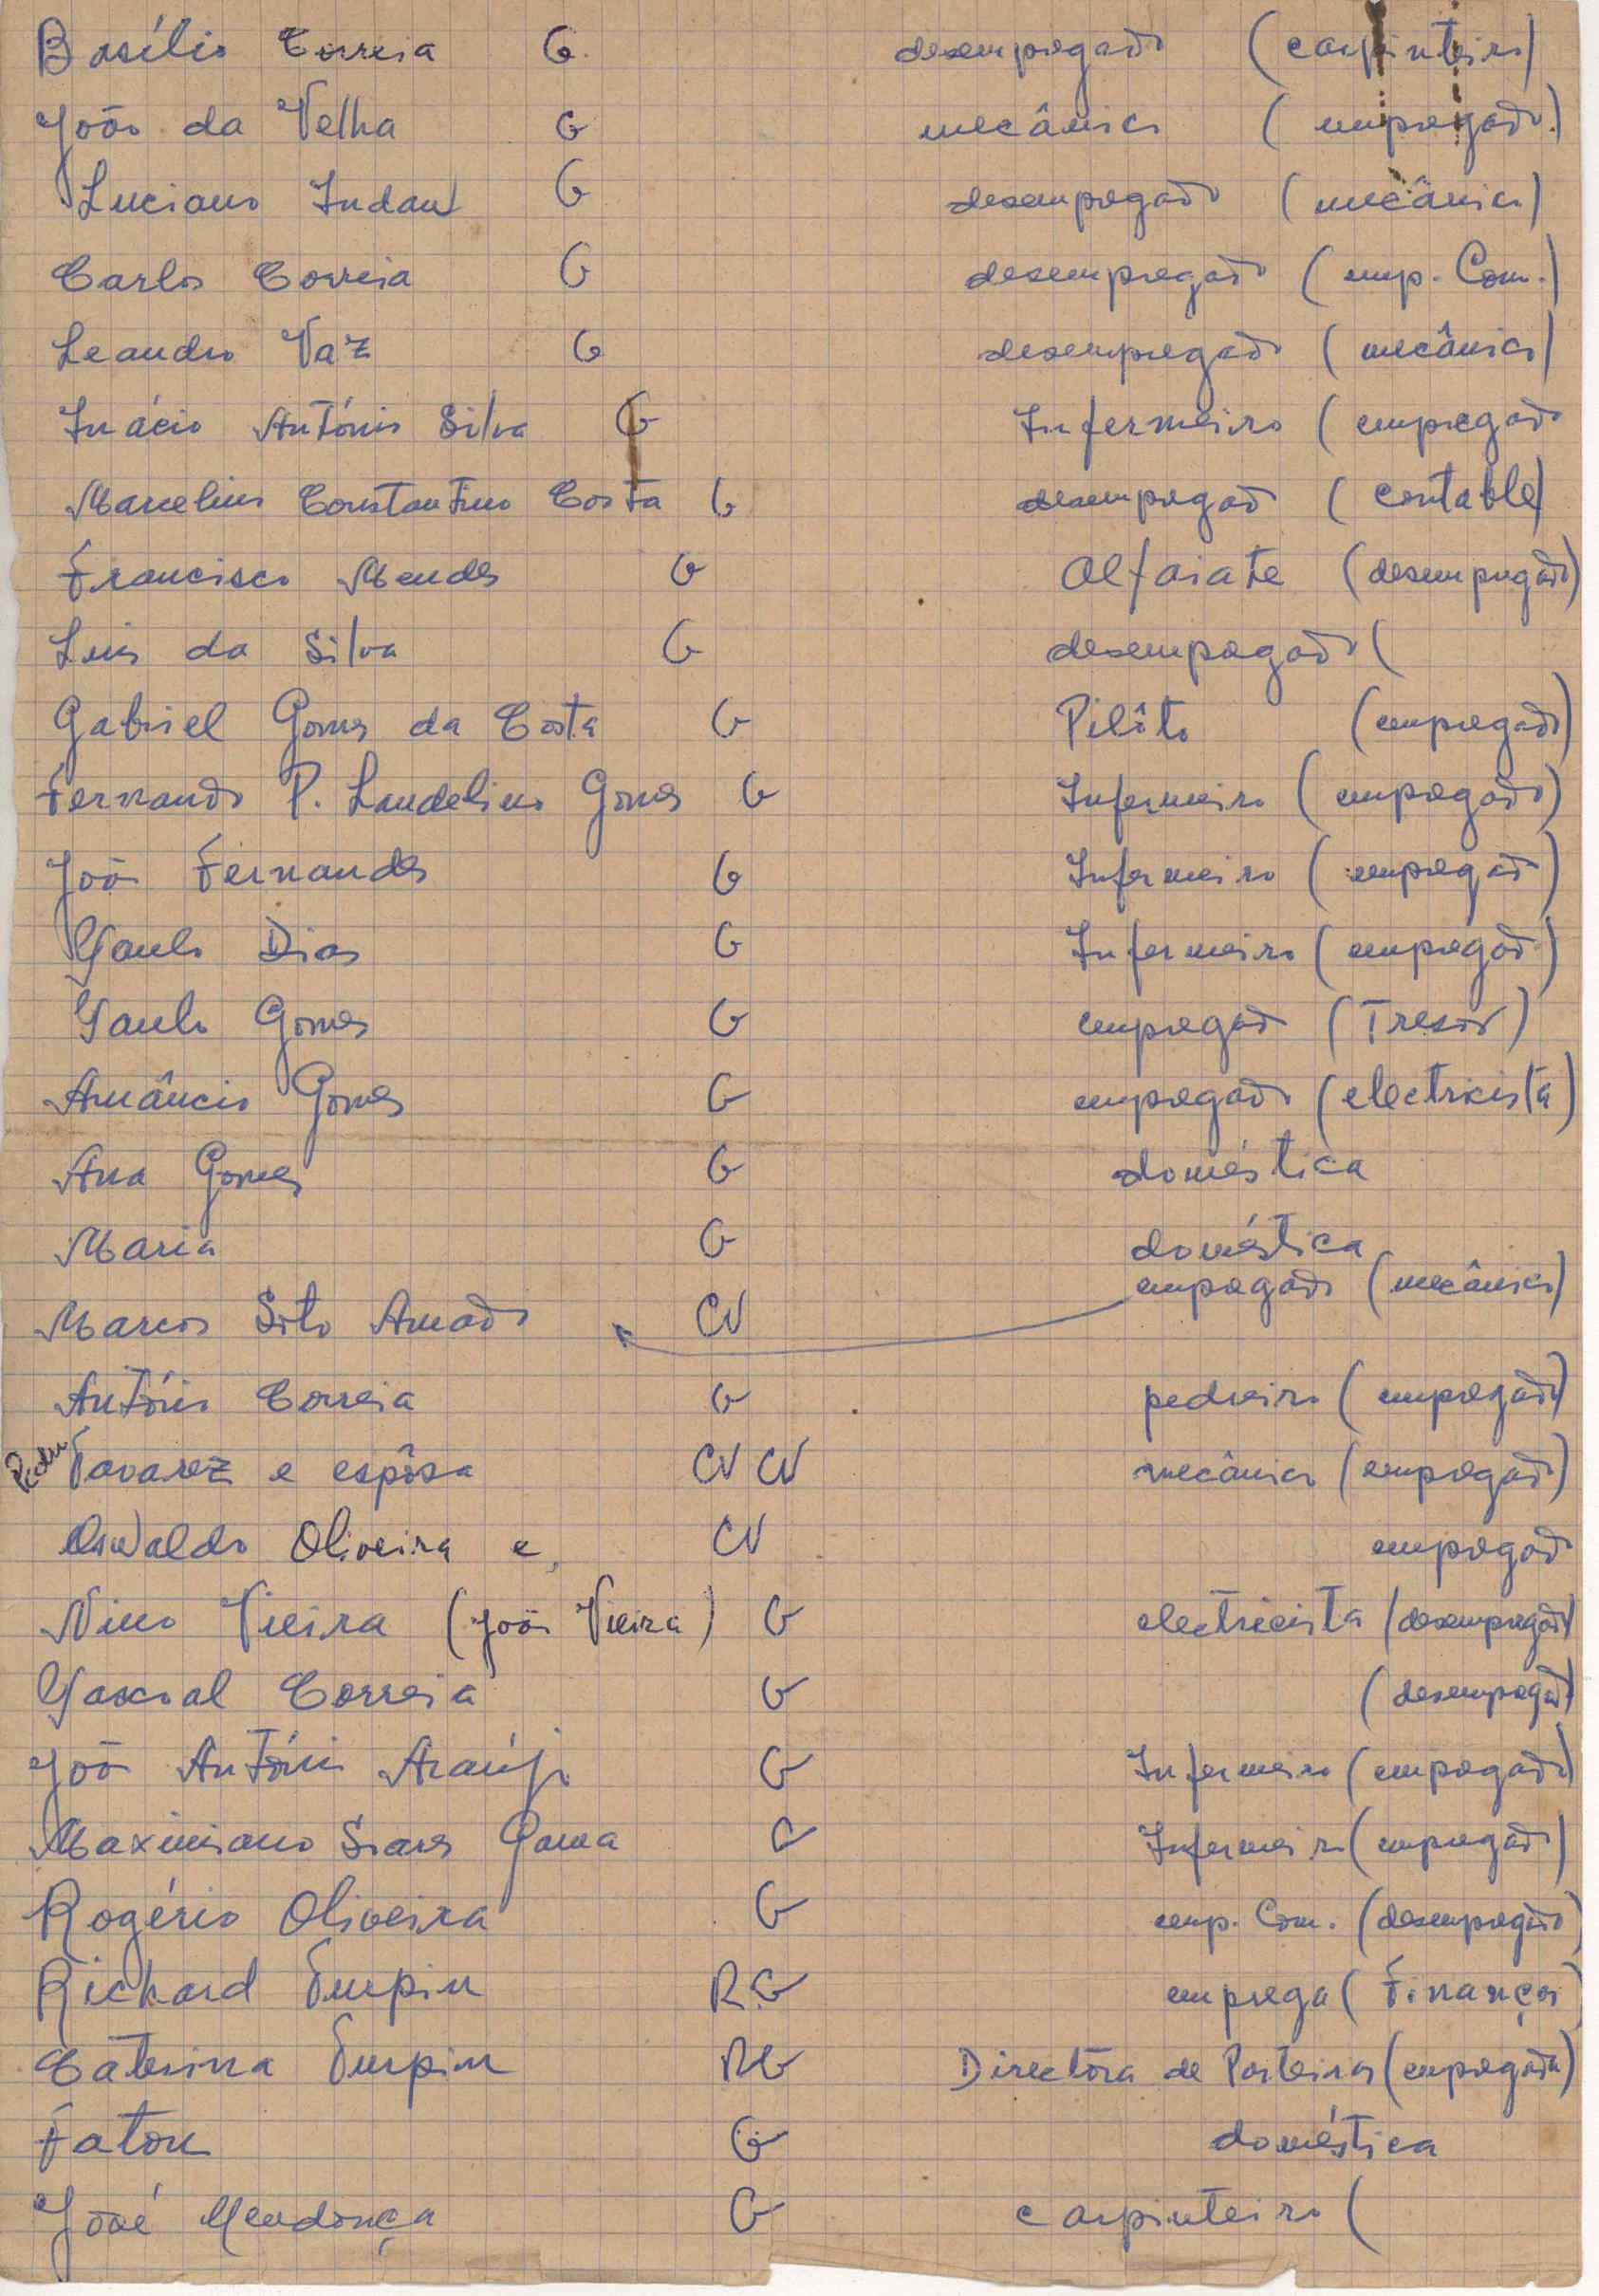 Basílio Correia G. desempregado (carpinteiro)
João da Velha G mecânico (empregado)
Luciano Indau G desempregado (mecânico)
Carlos Correia G desempregado (emp. Com.)
Leandro Vaz G desempregado (mecânico)
Inácio António Silva G Infermeiro (empregado
Marcelino Constantino Costa G desempregado (contable)
Francisco Mendes G Alfaiate (desempregado)
Luis da Silva G desempregado (
Gabriel Gomes da Costa G Pilôto (empregado)
Fernando P. Laudelino Gomes G Infermeiro (empregado)
João Fernandes G Infermeiro (empregado)
Paulo Dias G Infermeiro (empregado)
Paulo Gomes G empregado (Tresor)
Amâncio Gomes G empregado (electricista)
Ana Gomes G doméstica
Maria G doméstica
Marcos Soto Amado CV empregado (mecânico)
António Correia G pedreiro (empregado)
Pedro Tavarez e espôsa CV CV mecânico (empregado)
Oswaldo Oliveira e CV empregado
Nino Vieira (João Vieira) G electricista (desempregado)
Pascoal Correia G (desempregado)
João António Araújo G Infermeiro (empregado)
Maximiano Soares Gama G Infermeiro (empregado)
Rogério Oliveira G emp. Com. (desempregado)
Richard Turpin R.G emprega (Finanças)
Caterina Turpin RG Directôra de Porteiras (empregada)
Fatou G doméstica
José Mendonça G carpinteiro (